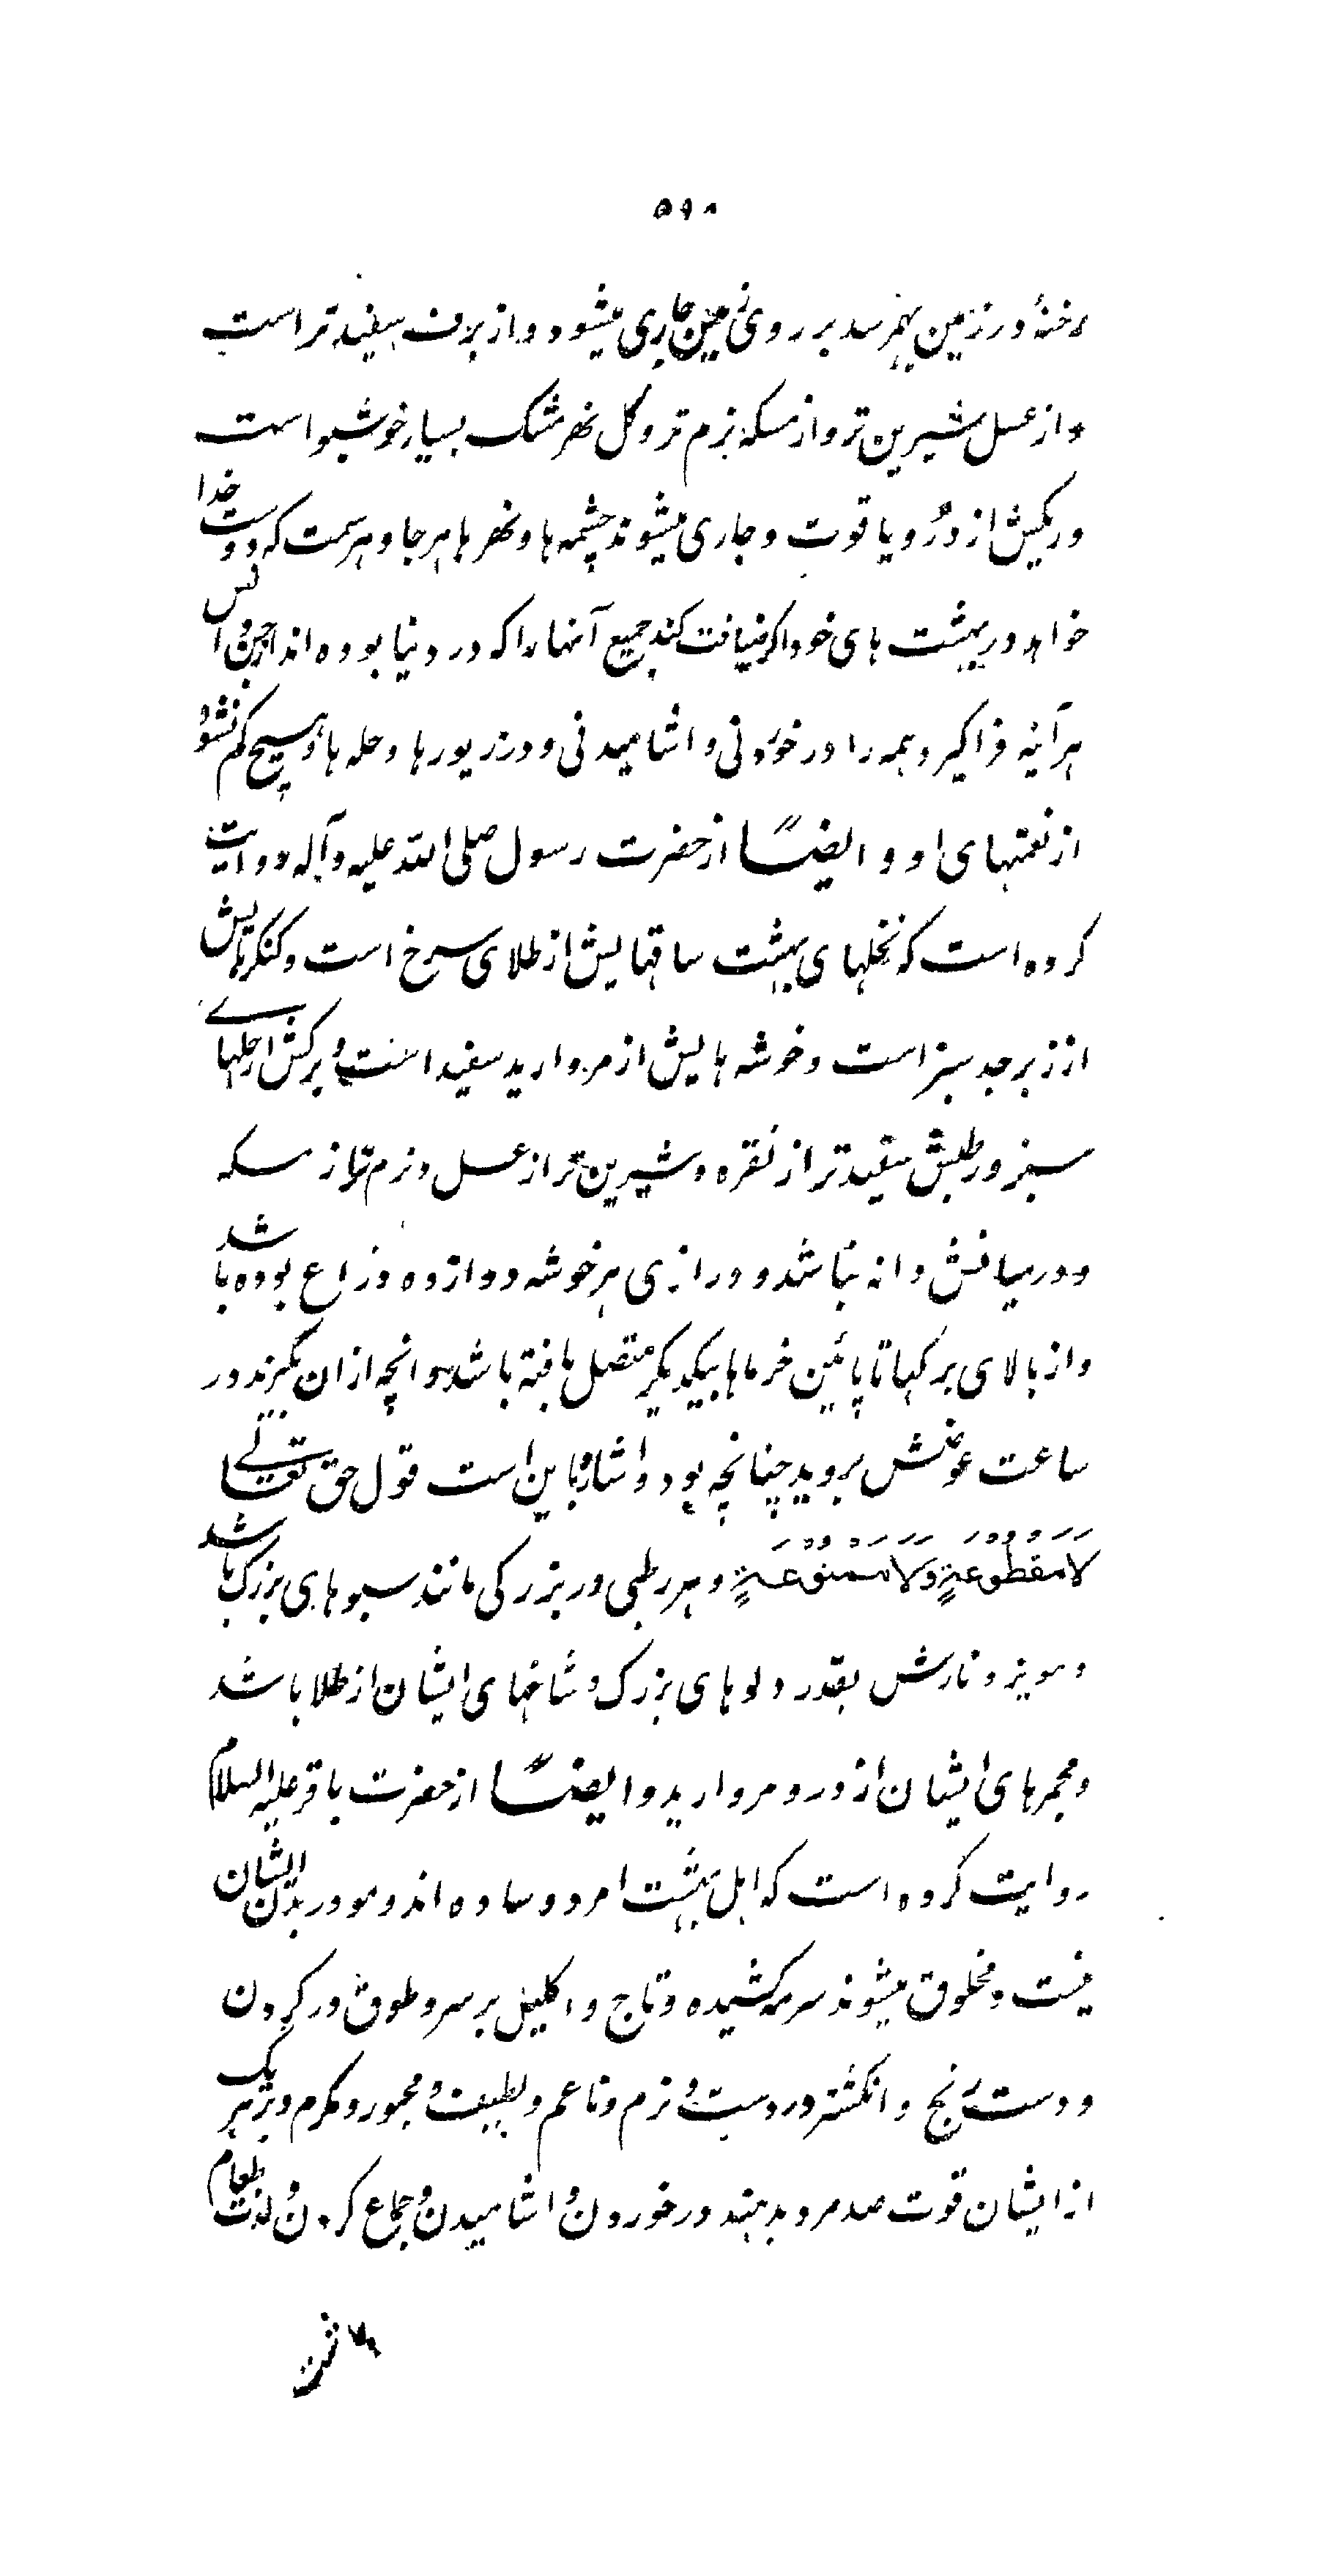 ۵۹۸
رخنهٔ در زمین بهمرسد بر روی زمین جاری میشود و از برف سفیدتر است
و از عسل شیرین تر و از مسکه نرم تر و گل نهر مشک بسیار خوشبو است
و ریگش از دُر و یاقوت و جاری میشوند چشمه ها و نهرها بهر جا و هر سمت که دوست خدا
خواهد و در بهشت های خود اگر ضیافت کند جمیع آنها را که در دنیا بوده اند از جن و انس
هر آینه فراگیرد همه را در خوردنی و اشامیدنی و در زیورها و حله ها و هیچ کم نشود
از نعمتهای او و ایضًا از حضرت رسول صلی الله علیه وآله روایت
کرده است که نخلهای بهشت ساقهایش از طلای سرخ است و کنگرهایش
از زبرجد سبز است و خوشه هایش از مروارید سفید است و برگش از حلهای
سبز و رطبش سفیدتر از نقره و شیرین تر از عسل و نرم تر از مسکه
و در میانش دانه نباشد و درازی هر خوشه دوازده ذراع بوده باشد
و از بالای برگها تا پائین خرماها بیکدیگر متصل بافته باشد و انچه از ان بگیرند در
ساعت عوضش بروید چنانچه بود و اشاره باین است قول حق تعالی
لَا مَقْطُوعَةٍ وَلَا مَمْنُوعَةٍ و هر رطبی در بزرگی مانند سبوهای بزرگ باشد
و مویز و نارش بقدر دلوهای بزرگ و شاخهای ایشان از طلا باشد
و مجمرهای ایشان از در و مروارید و ایضًا از حضرت باقر علیه السلام
روایت کرده است که اهل بهشت امرد و ساده اند و مو در بدن ایشان
نیست و مخلوق میشوند سرمه کشیده و تاج و اکلیل بر سر و طوق در گردن
و دست رنج و انگشتر در دست و نرم و ناعم و لطیف و مجبور و مکرم و بهر یک
از ایشان قوت صد مرد بدهند در خوردن و اشامیدن و جماع کردن و لذت طعام